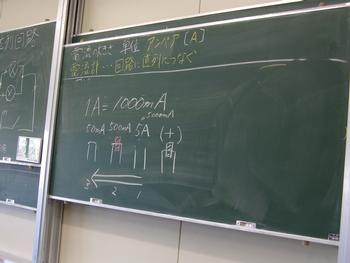 列回路
電流の大きさ 単位 アンペア [A]
電流計… 回路に直列につなぐ
1A = 1000mA
5000mA
50mA 500mA 5A (+)
3 2 1